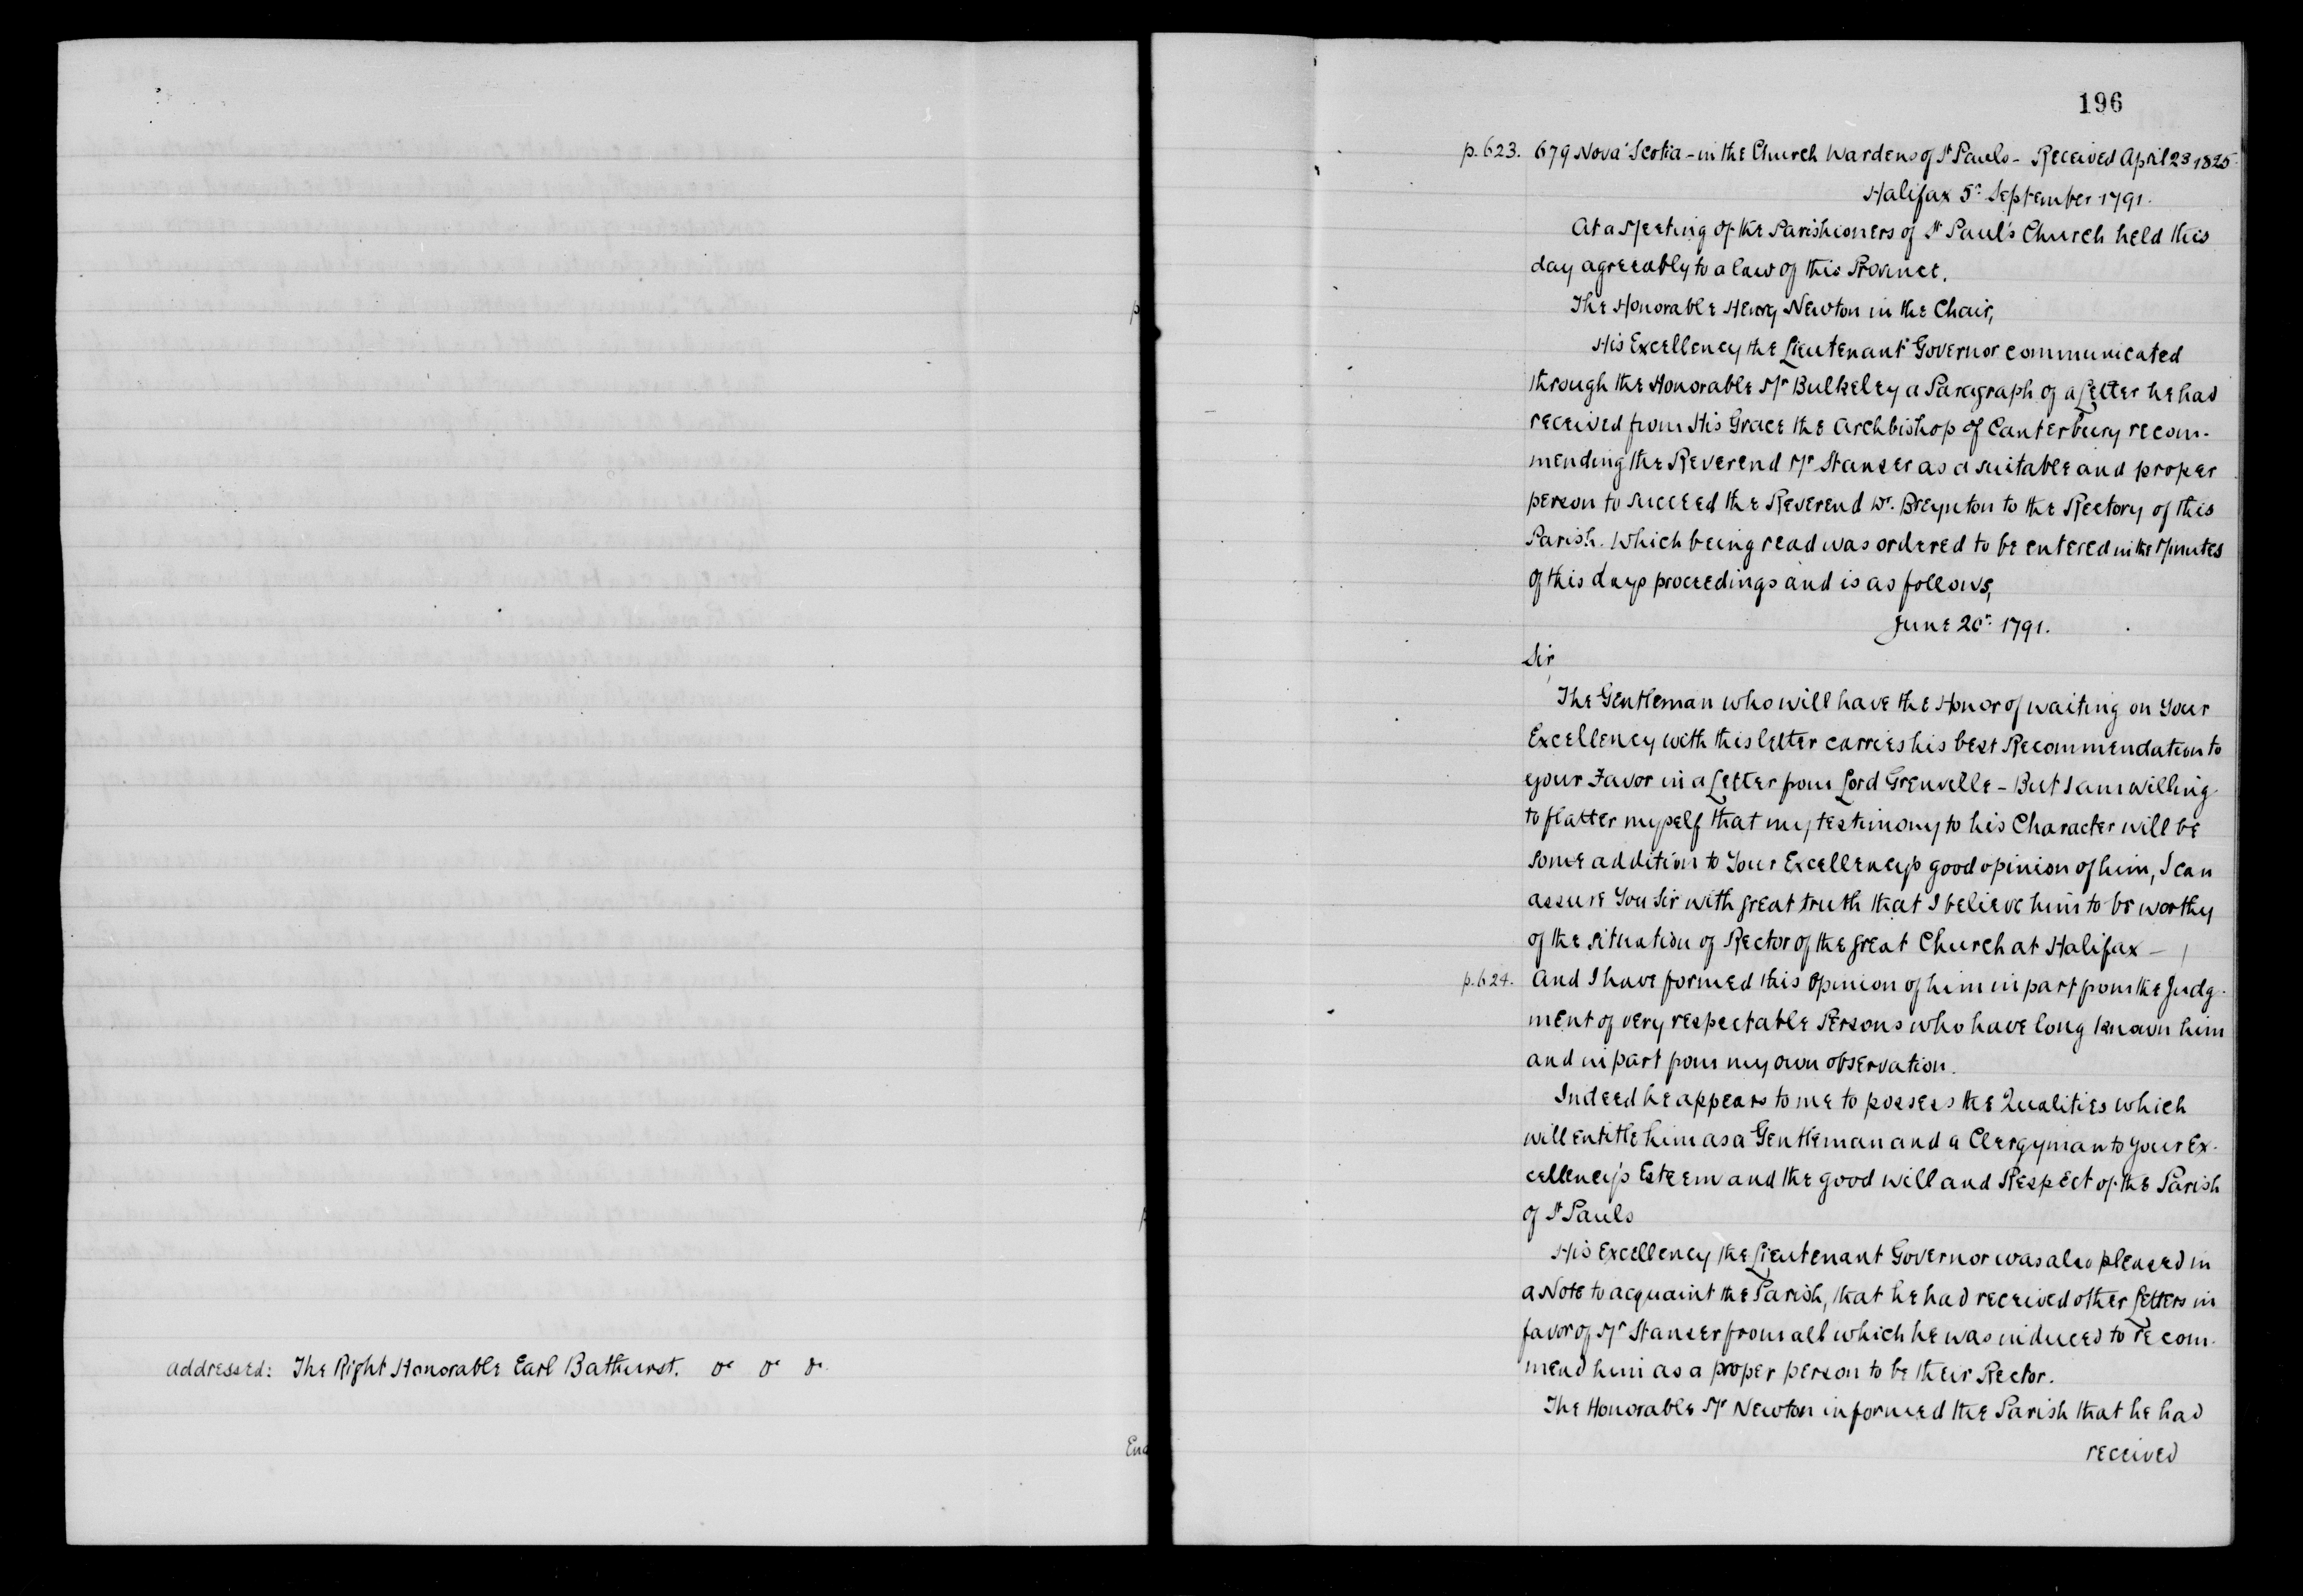 addressed: The Right Honorable Earl Bathurst. &c &c &c
196
p.623. 679 Nova Scotia - in the Church Wardens of St Pauls - Received April 23 1825
Halifax 5th September 1791.
At a Meeting of the Parishioners of St Paul's Church held this
day agreeably to a law of this Province.
The Honorable Henry Newton in the Chair,
His Excellency the Lieutenant Governor communicated
through the Honorable Mr Bulkeley a Paragraph of a Letter he had
received from His Grace the Archbishop of Canterbury recom-
mending the Reverend Mr Stanser as a suitable and proper
person to succeed the Reverend Dr. Breynton to the Rectory of this
Parish. Which being read was ordered to be entered in the Minutes
of this days proceedings and is as follows,
June 20th 1791.
Sir,
The Gentleman who will have the Honor of waiting on Your
Excellency with this letter carries his best Recommendation to
your Favor in a Letter from Lord Grenville - But I am willing
to flatter myself that my testimony to his Character will be
some addition to Your Excellencys good opinion of him, I can
assure You Sir with great truth that I believe him to be worthy
of the situation of Rector of the great Church at Halifax -
p.624. And I have formed this Opinion of him in part from the Judg-
ment of very respectable Persons who have long known him
and in part from my own observation.
Indeed he appears to me to possess the Qualities which
will entitle him as a Gentleman and a Clergyman to your Ex-
cellency's Esteem and the good will and Respect of the Parish
of St Pauls
His Excellency the Lieutenant Governor was also pleased in
a Note to acquaint the Parish, that he had received other Letters in
favor of Mr Stanser from all which he was induced to recom-
mend him as a proper person to be their Rector.
The Honorable Mr Newton informed the Parish that he had
received